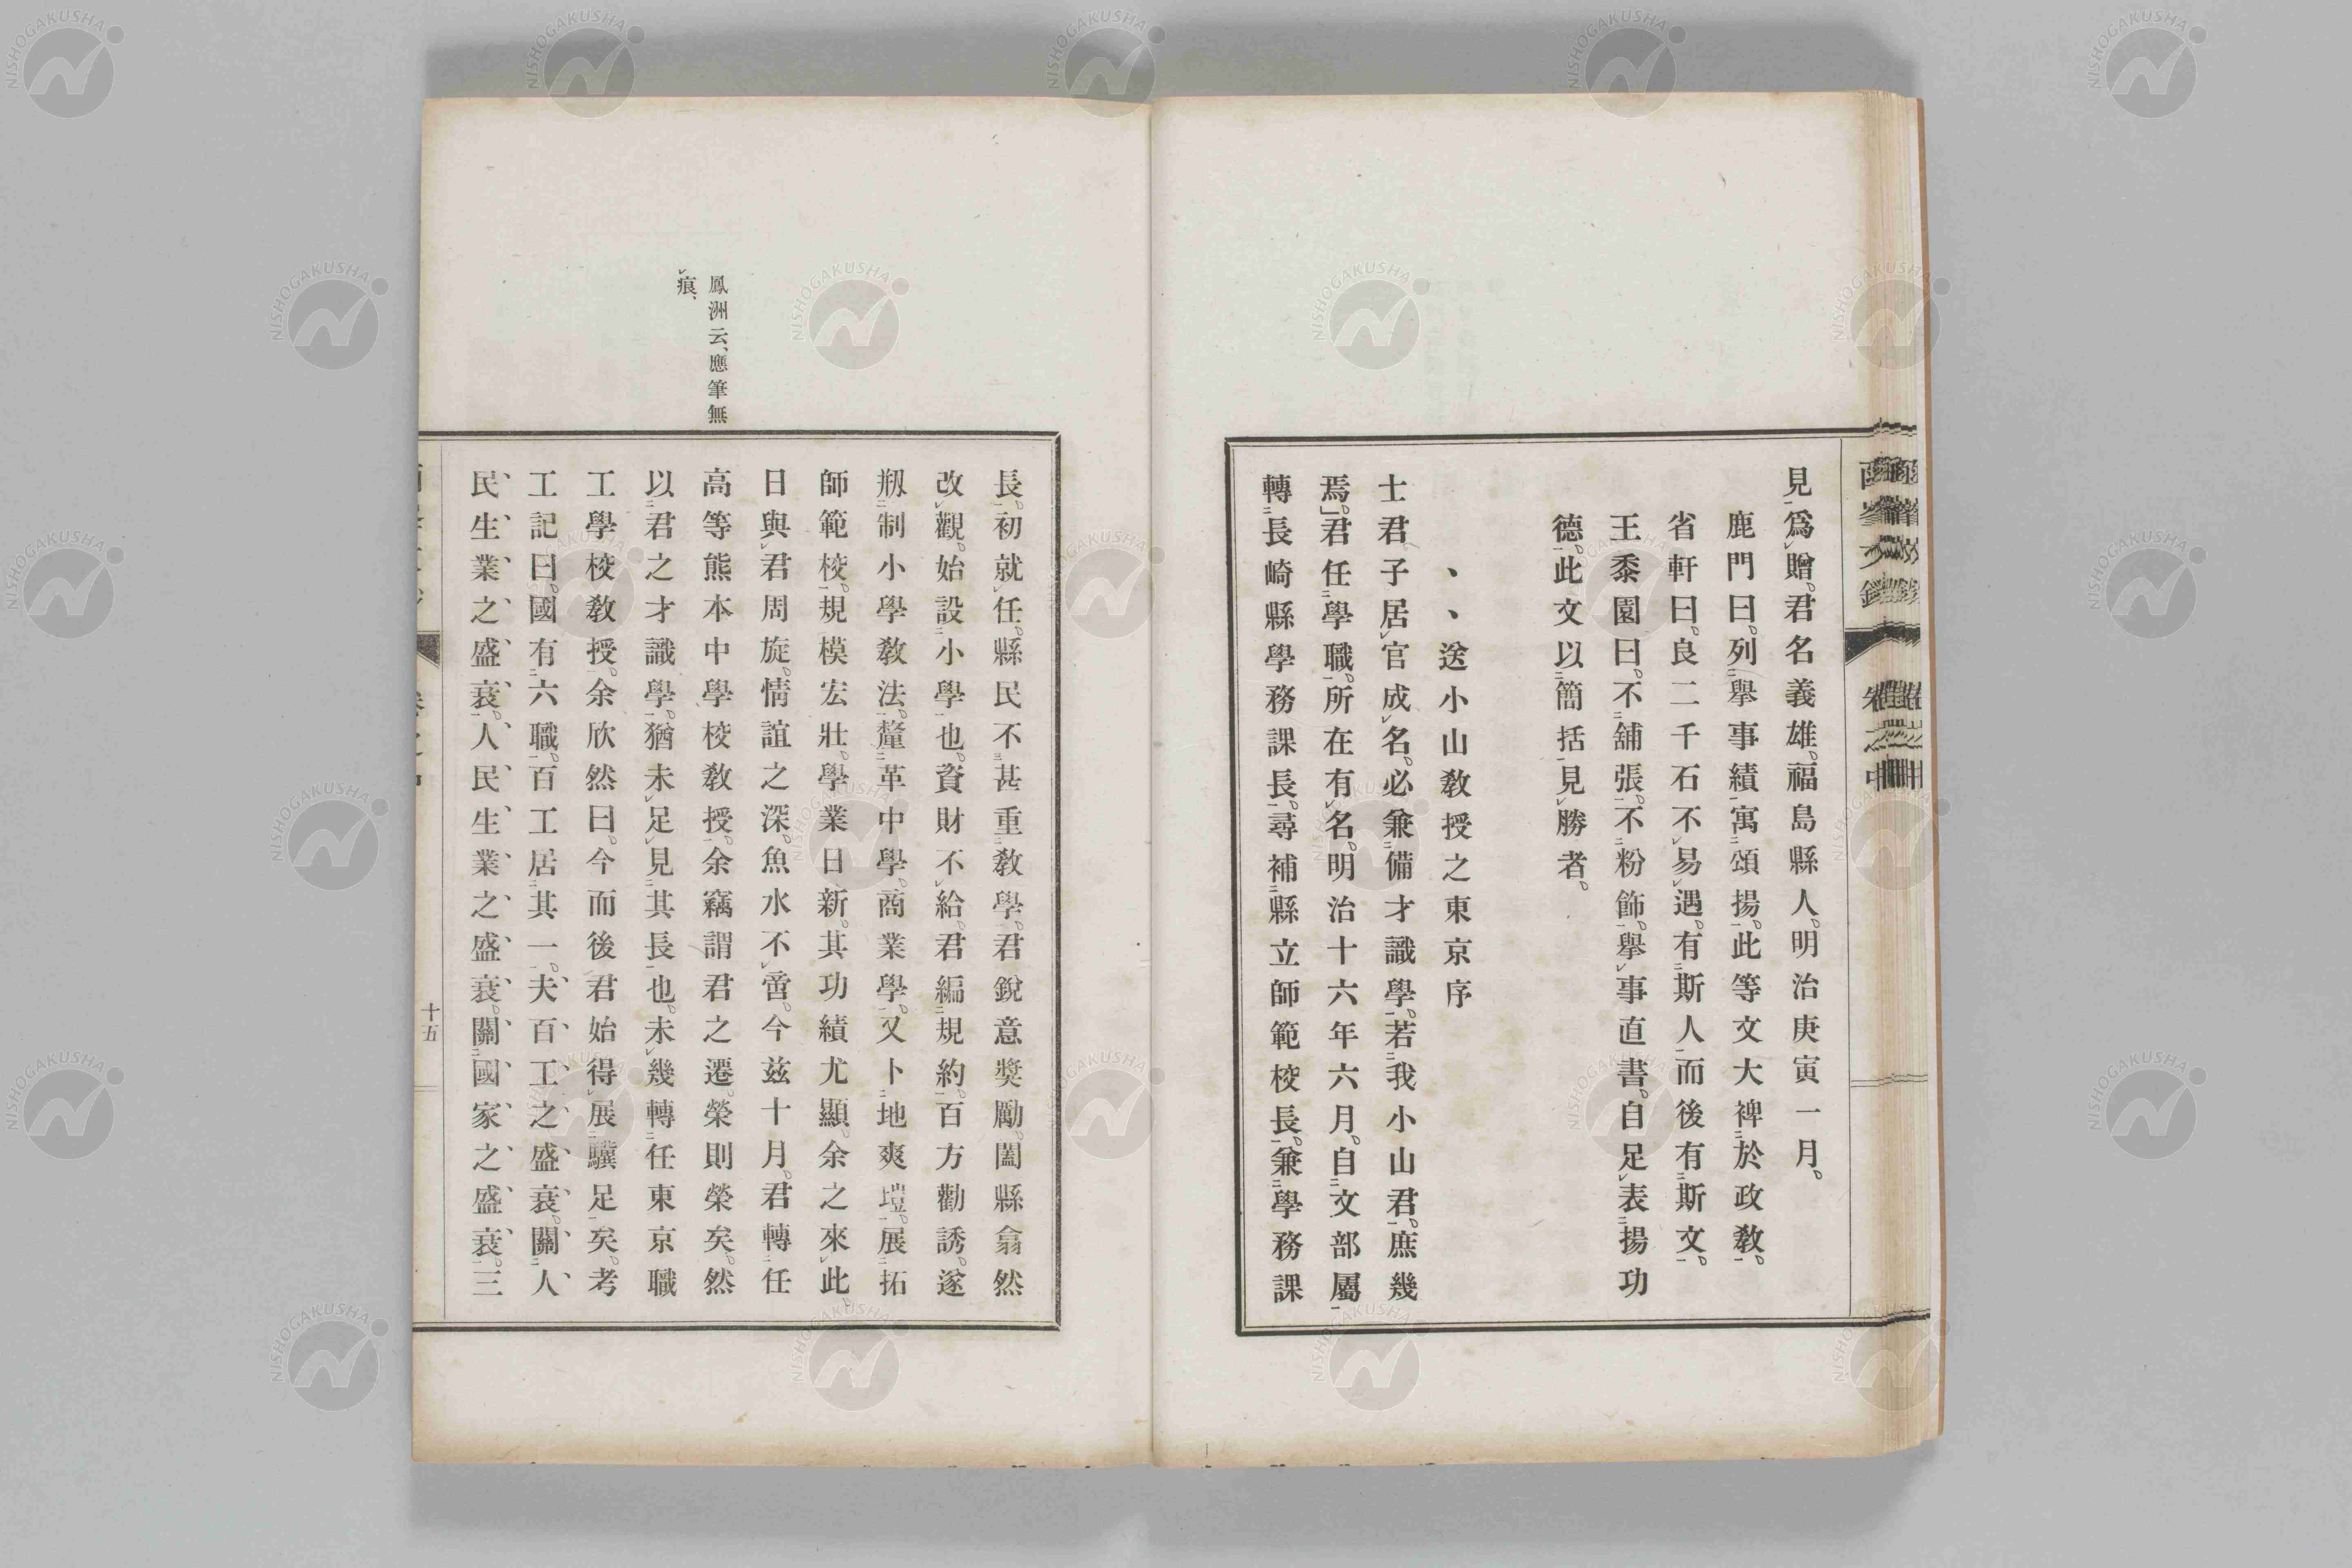 見爲贈。君名義雄。福島縣人。明治庚寅一月。
鹿門曰。列擧事績。寓頌揚。此等文大裨於政敎。
省軒曰。良二千石不易遇。有斯人而後有斯文。
王黍園曰。不舖張。不粉飾。擧事直書。自足表揚功
德。此文以簡括見勝者。
、、送小山敎授之東京序
士君子居官成名。必兼備才識學。若我小山君。庶幾
焉」君任學職。所在有名。明治十六年六月。自文部屬
轉長崎縣學務課長。尋補縣立師範校長。兼學務課
長。初就任。縣民不甚重敎學。君銳意獎勵。闔縣翕然
改觀。始設小學也。資財不給。君編規約。百方勸誘。遂
剏制小學敎法。釐革中學。商業學。又卜地爽塏。展拓
師範校。規模宏壯。學業日新。其功績尤顯。余之來此
日與君周旋。情誼之深。魚水不啻。今玆十月。君轉任
高等熊本中學校敎授。余竊謂君之遷。榮則榮矣。然
以君之才識學。猶未足見其長也。未幾轉任東京職
工學校敎授。余欣然曰。今而後君始得展驥足矣。考
工記曰。國有六職。百工居其一。夫百工之盛衰。關人
民生業之盛衰。人民生業之盛衰。關國家之盛衰。三
鳳洲云、應筆無
痕、
十五